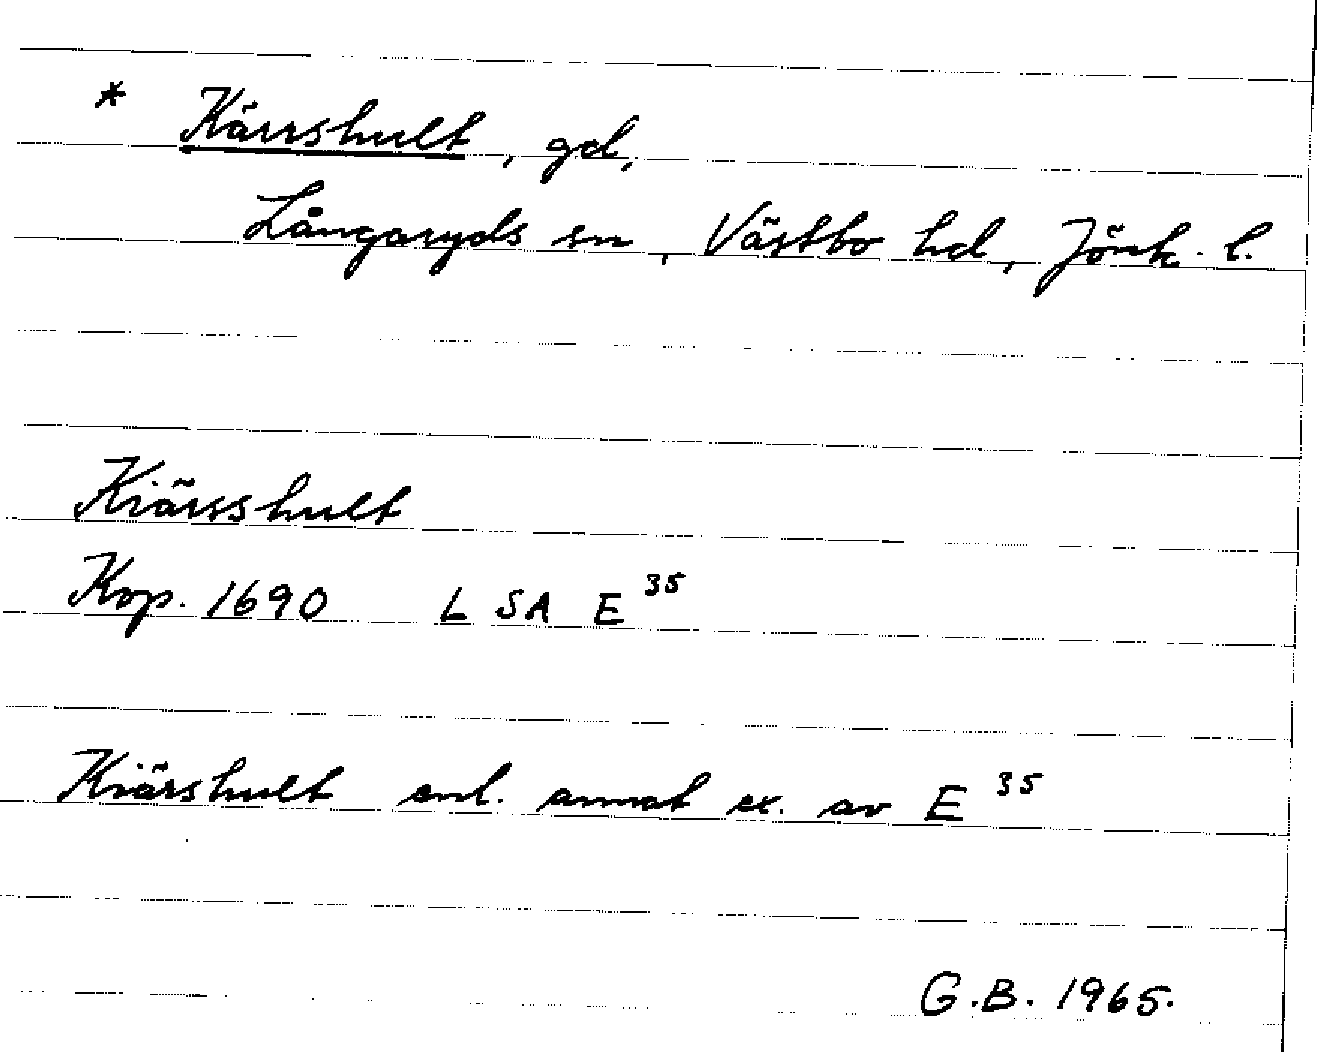 * Kärrshult, gd,
Långaryds sn, Västbo hd, Jönk. l.
Kiärsshult
Kop. 1690 LSA E 35
Kiärshult enl. annat ex. av E 35
G.B. 1965.